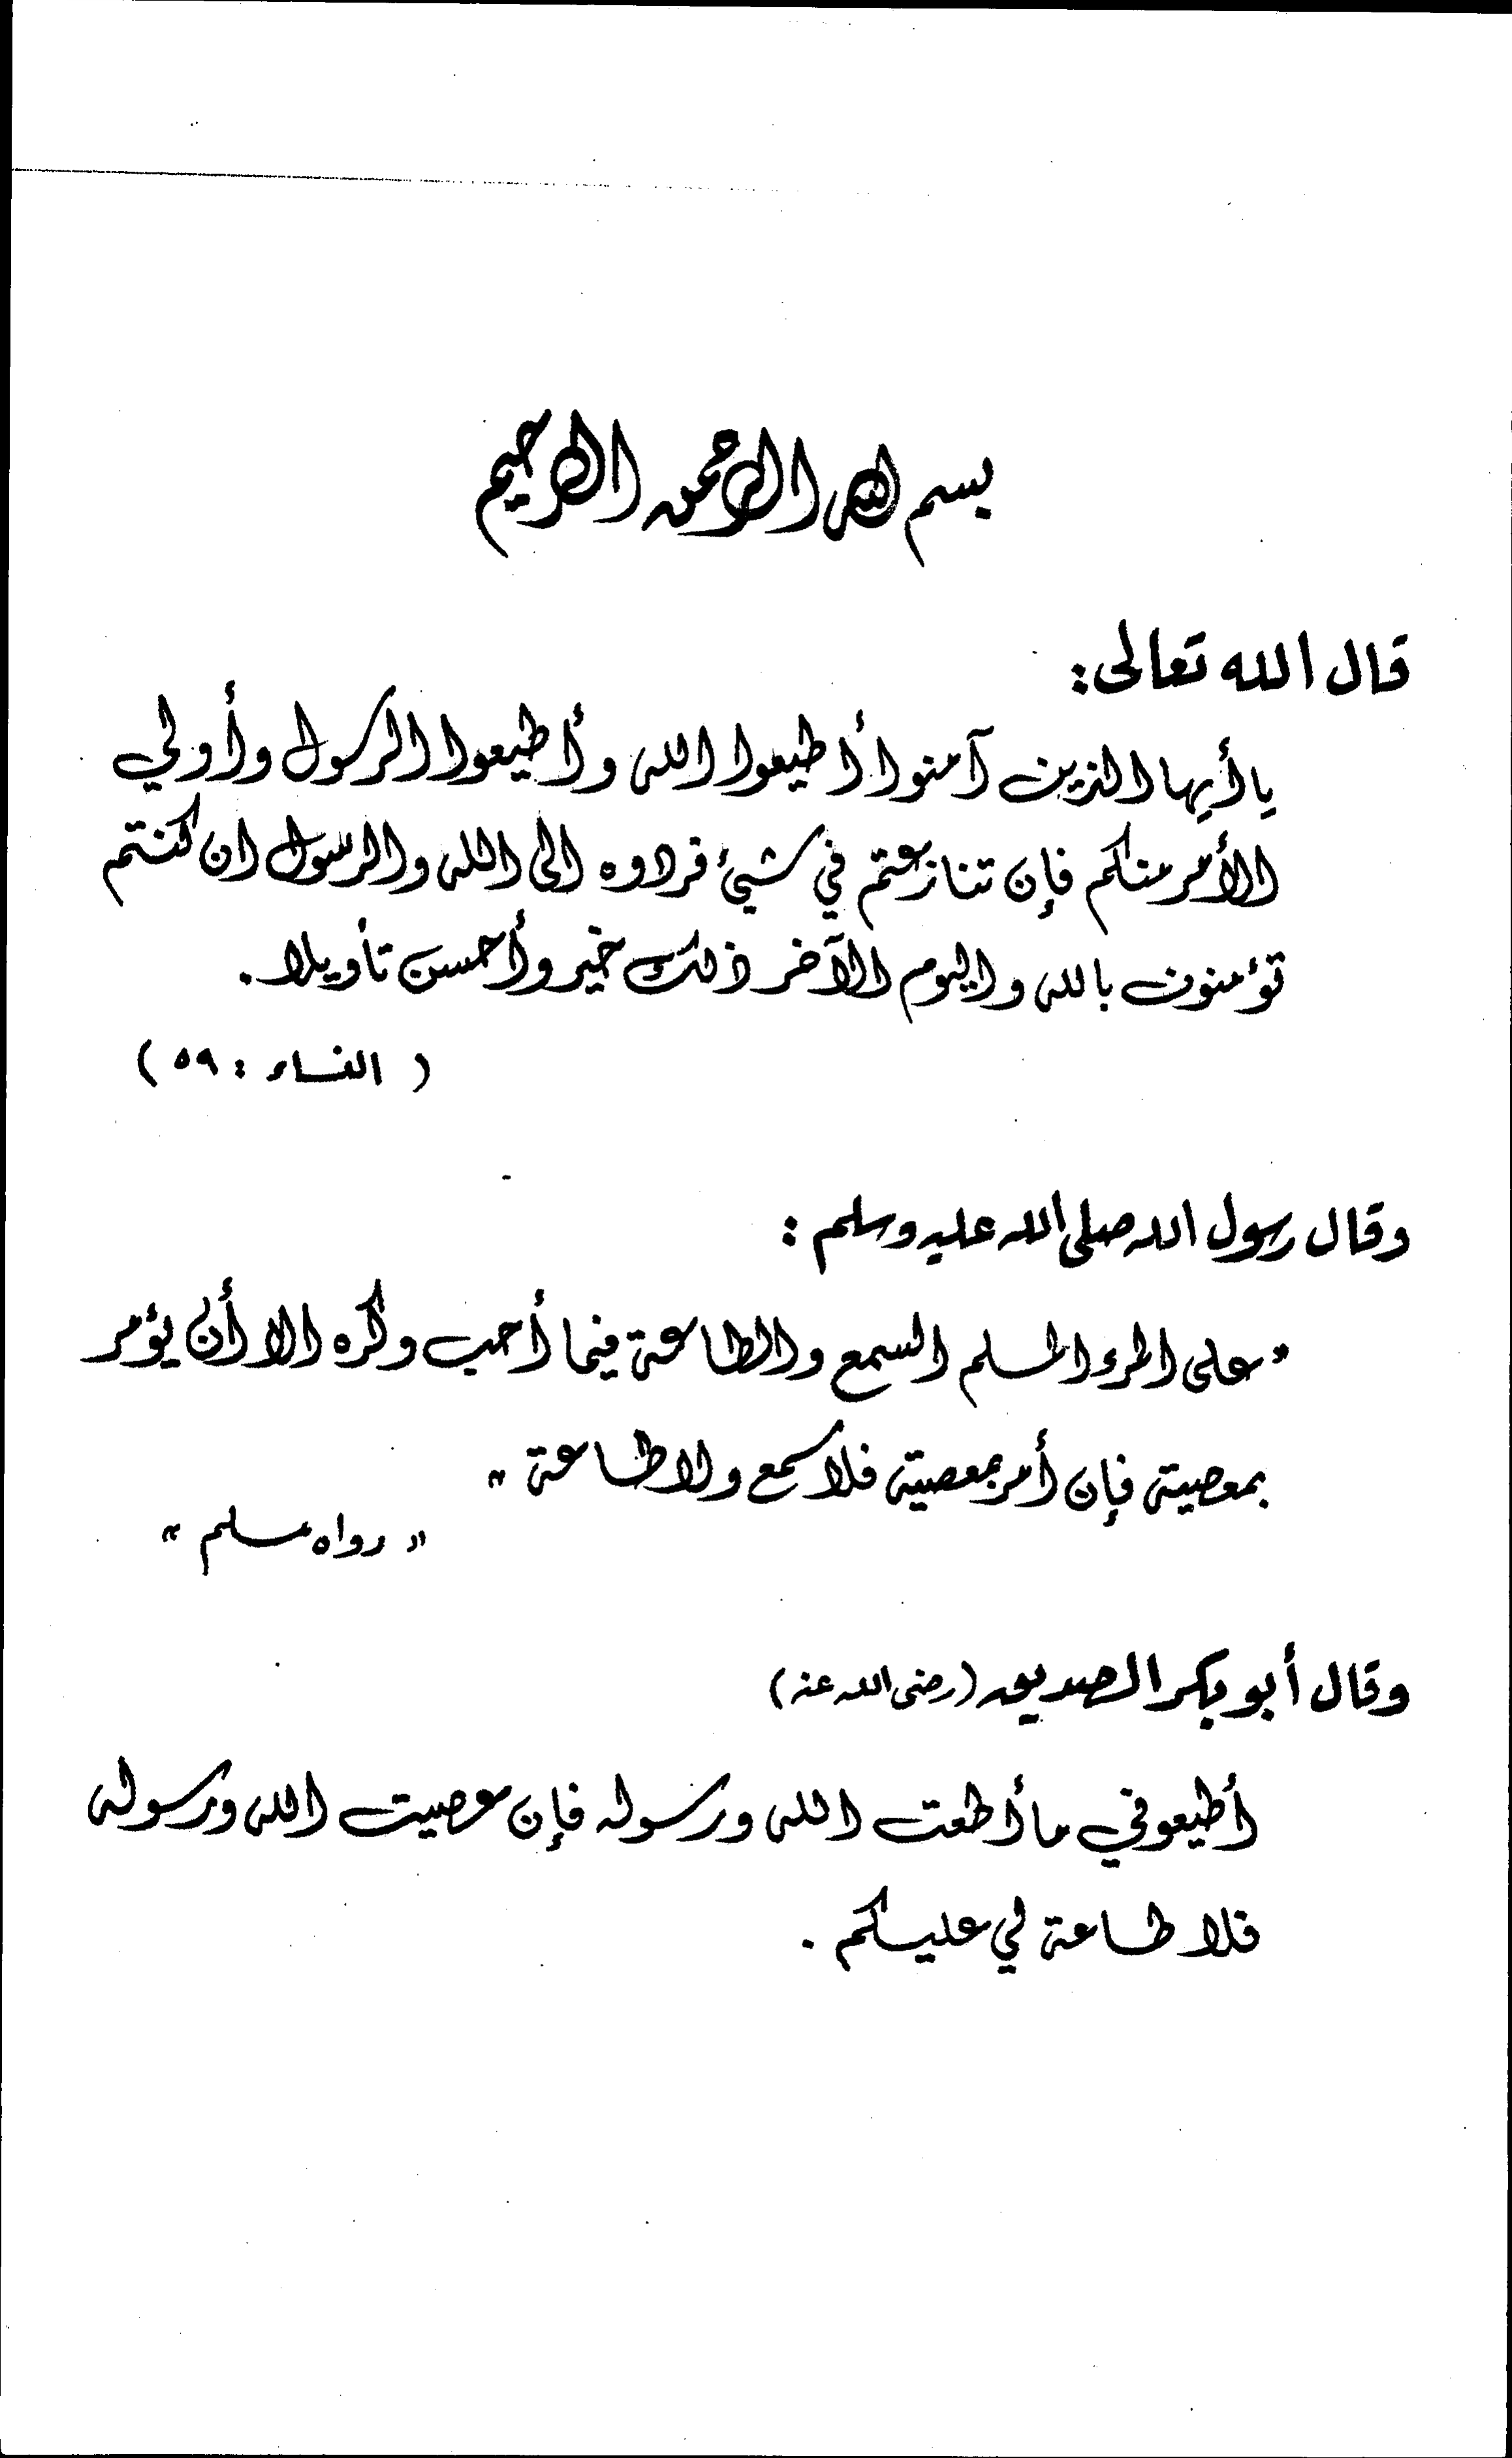 بسم الله الرحمن الرحيم
قال الله تعالى:
يا أيها الذين آمنوا أطيعوا الله وأطيعوا الرسول وأولي
الأمر منكم فإن تنازعتم في شيئ فردوه الى الله والرسول ان كنتم
تؤمنون بالله واليوم الآخر ذلك خير وأحسن تأويلا.
(النساء : ٥٩)
وقال رسول الله صلى الله عليه وسلم :
"على المرء المسلم السمع والطاعة فيما أحب وكره الا أن يؤمر
بمعصية فإن أمر بمعصية فلا سمع ولا طاعة"
"رواه مسلم"
وقال أبو بكر الصديق (رضى الله عنه)
أطيعوني ما أطعت الله ورسوله فإن عصيت الله ورسوله
فلا طاعة لي عليكم .